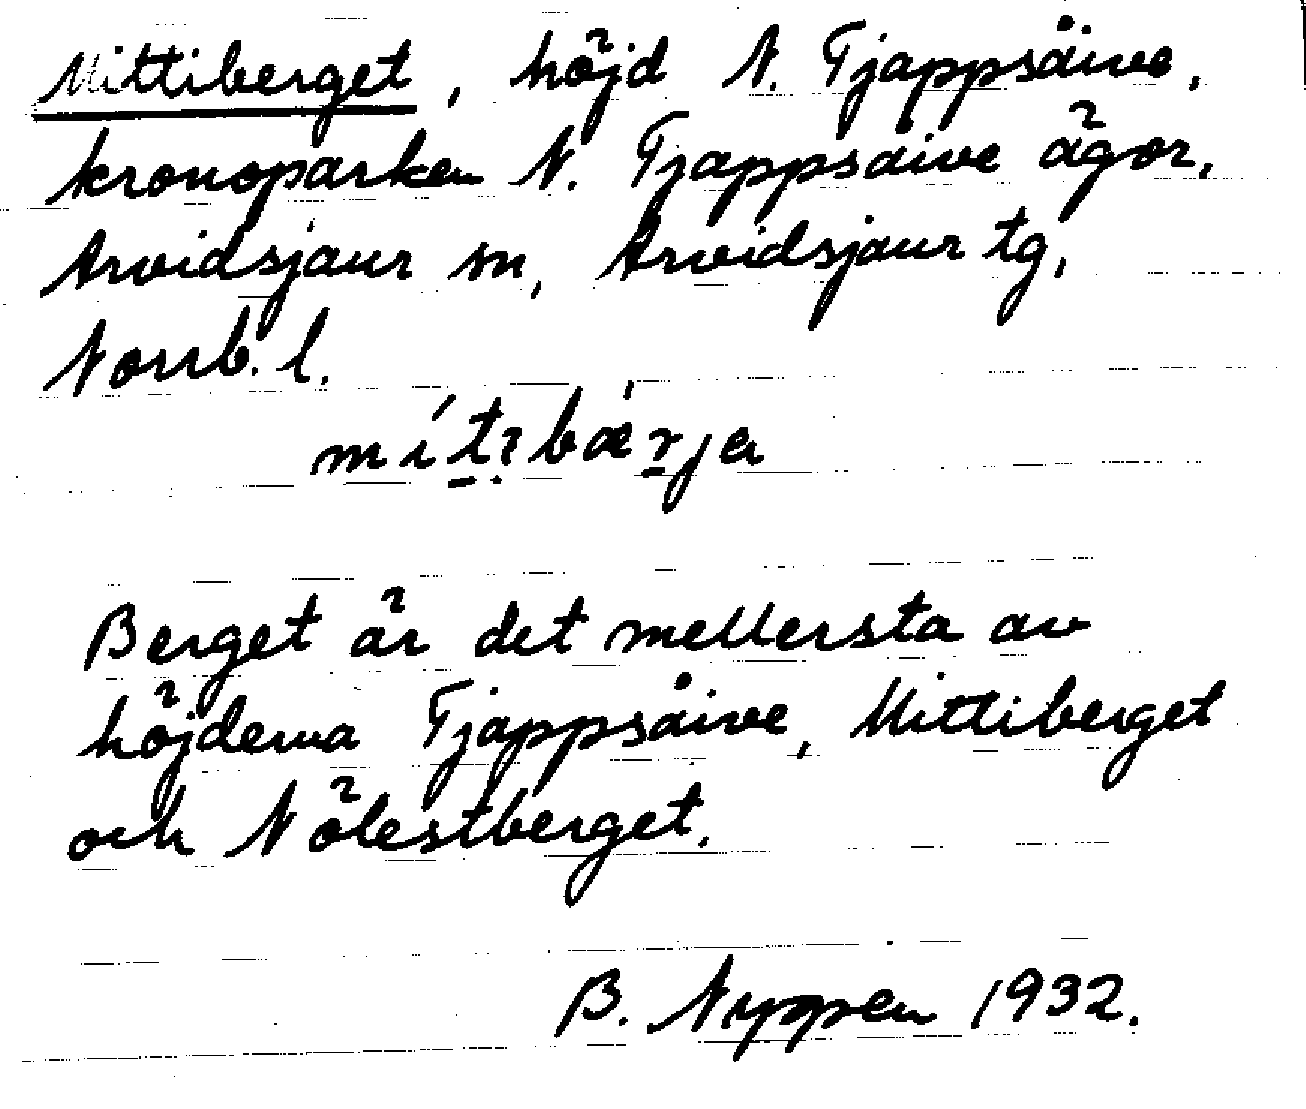 Mittiberget, höjd N. Tjappsåive,
kronoparken N. Tjappsåive ägor,
Arvidsjaur sn, Arvidsjaur tg,
Norrb. l.
Berget är det mellersta av
höjderna Tjappsåive, Mittiberget
och Nölestberget.
B. Nyppen 1932.